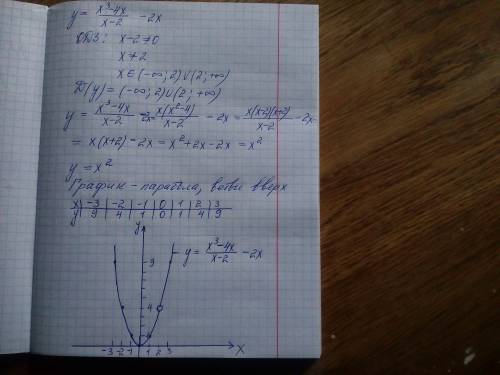 y = (x³-4x)/(x-2) - 2x
ОДЗ: x-2≠0
x≠2
x∈(-∞;2)∪(2;+∞)
D(y)=(-∞;2)∪(2;+∞)
y = (x³-4x)/(x-2) - 2x = x(x²-4)/(x-2) - 2x = x(x-2)(x+2)/(x-2) - 2x
= x(x+2) - 2x = x²+2x-2x = x²
y = x²
График - парабола, ветви вверх
x | -3 | -2 | -1 | 0 | 1 | 2 | 3
y | 9 | 4 | 1 | 0 | 1 | 4 | 9
y
y = (x³-4x)/(x-2) - 2x
9
4
-3 -2 -1 1 2 3 X